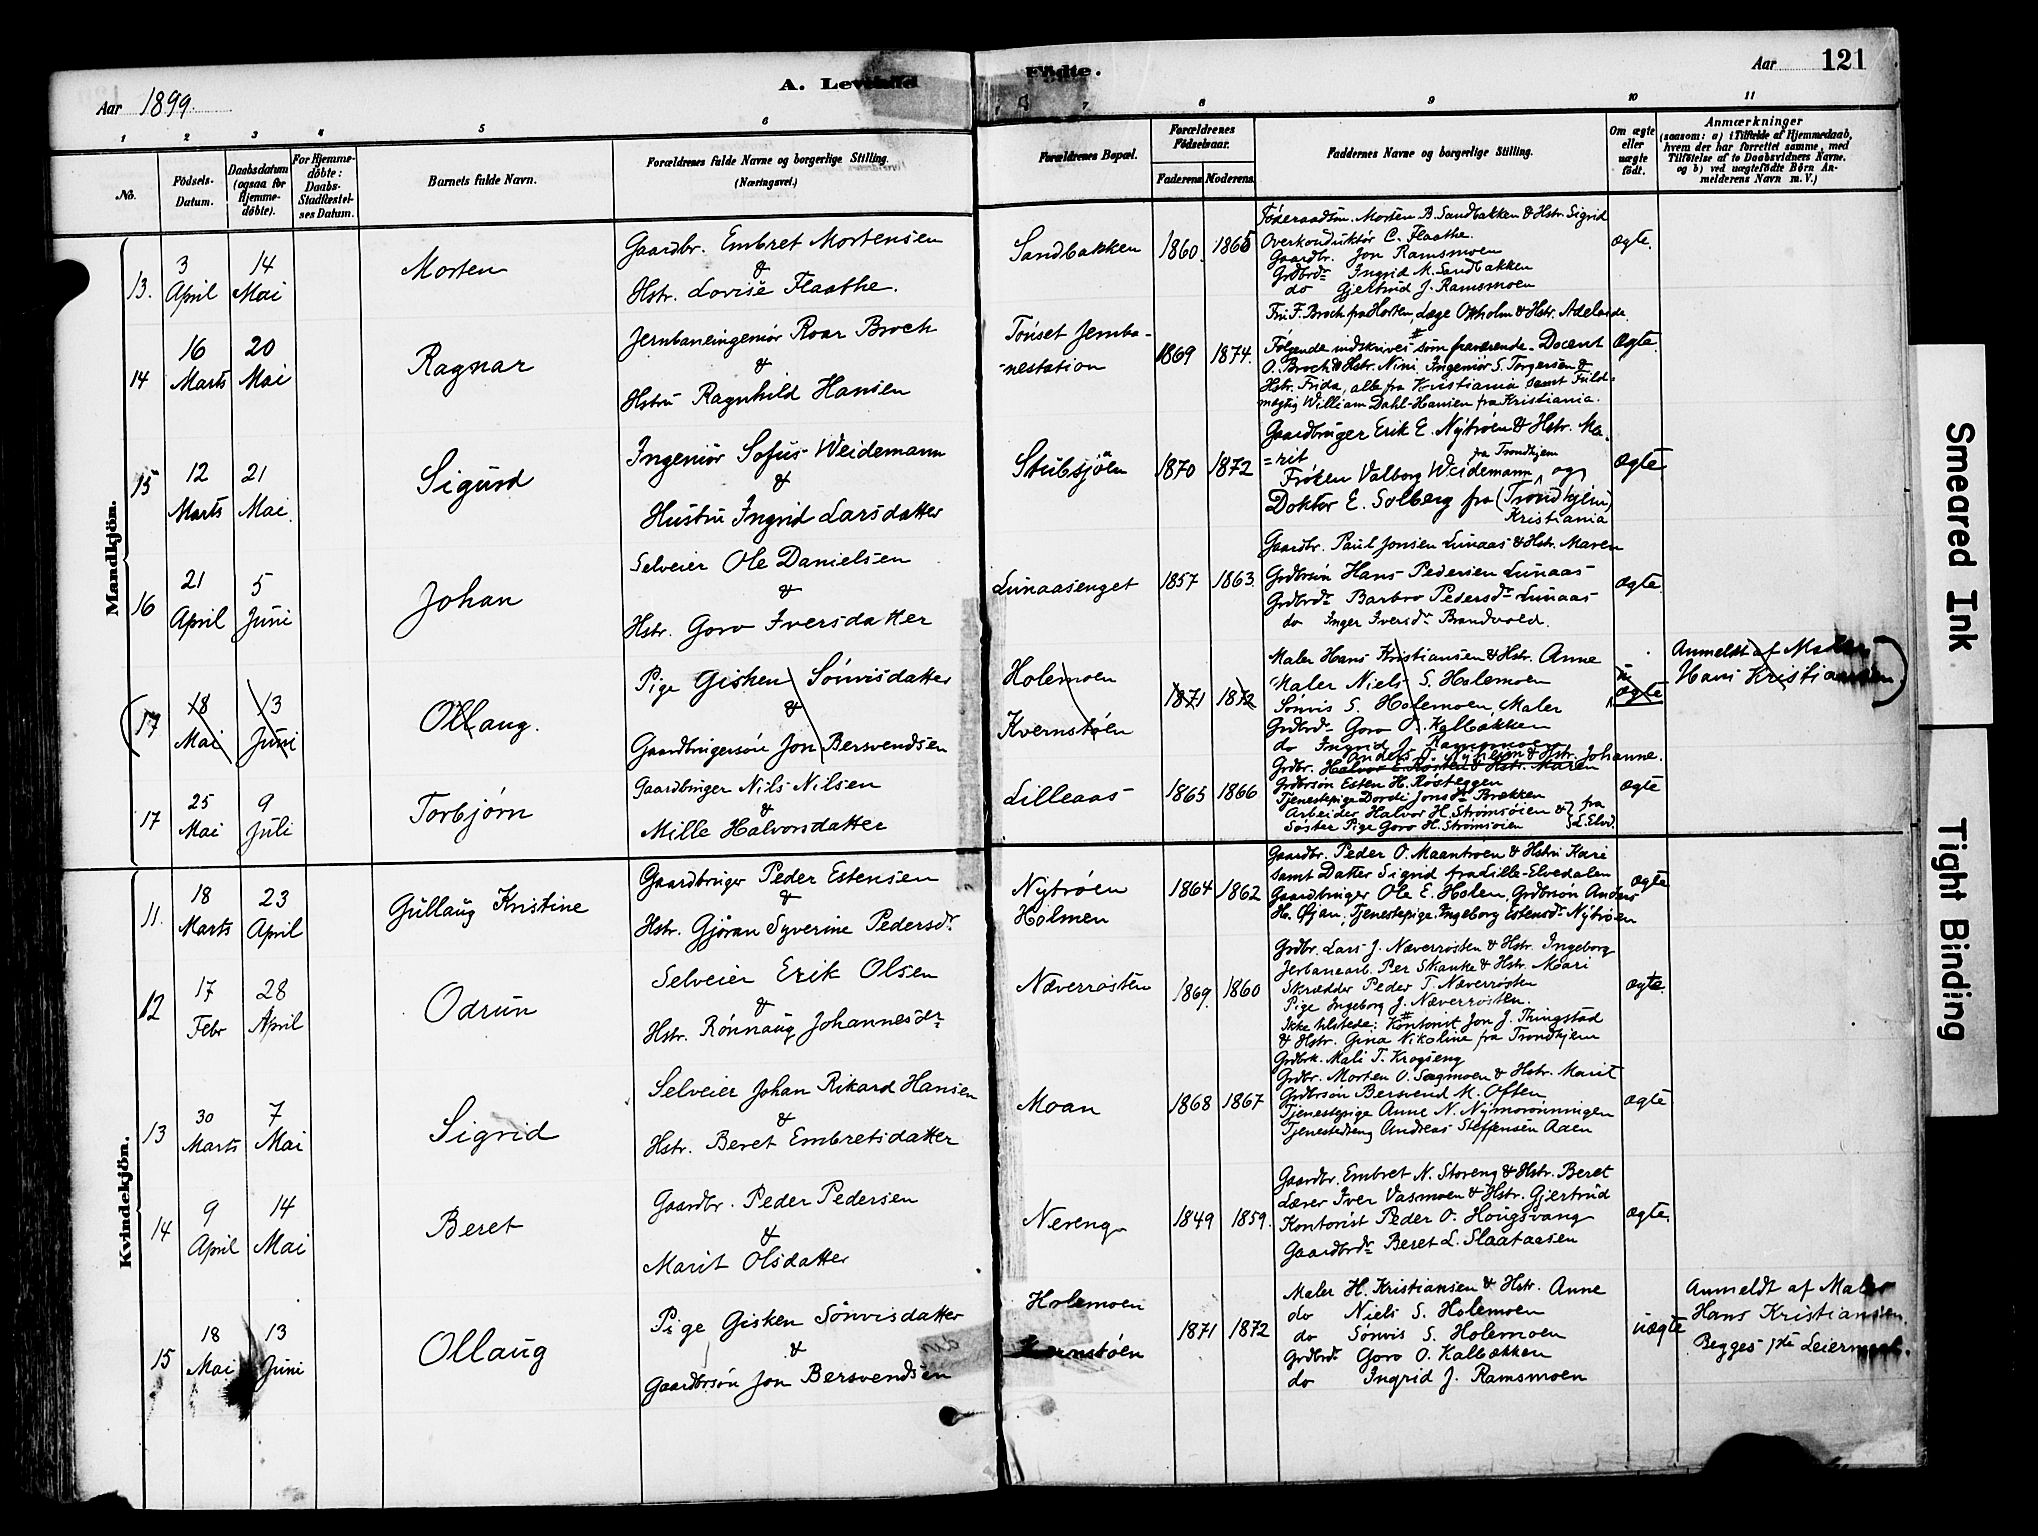 A. Levende Födte.
Aar 1899.
Aar 121
1 2 3 4 5 6 7 8 9 10 11
No.
Födsels-Datum.
Daabsdatum (ogsaa for Hjemme-döbte).
For Hjemme-döbte: Daabs-Stadfæstel-ses Datum.
Barnets fulde Navn.
Forældrenes fulde Navne og borgerlige Stilling. (Næringsvei.)
Forældrenes Bopæl.
Forældrenes Födselsaar.
Faderens Moderens
Faddernes Navne og borgerlige Stilling.
Om ægte eller uægte födt.
Anmærkninger
(saasom: a) i Tilfælde af Hjemmedaab,
hvem der har forrettet samme, med
Tilföielse af to Daabsvidners Navne.
og b) ved uægtefödte Börn An-
melderens Navn m. V.)
Mandkjön.
13. 3 April 14 Mai
Morten
Gaardbr. Embret Mortensen
&
Hstr. Lovise Flaathe.
Sandbakken 1860 1865
Föderaadsm. Morten B. Sandbakken & Hstr. Sigrid
Overkonduktör C. Flaathe.
Gaardbr. Jon Ramsmoen
Grdbrdr Ingrid M. Sandbakken
do Gjertrud J. Ramsmoen
ægte.
14 16 Marts 20 Mai
Ragnar
Jernbaneingeniör Roar Broch
&
Hstru Ragnhild Hansen
Tönset Jernba-
-nestation 1869 1874.
Fru F. Broch fra Horten, Læge Offholm & Hstr. Adelaide
Fölgende indskrives som fraværende. Docent
O. Broch & Hstr. Nini. Ingeniör S. Torgersen &
Hstr. Frida, alle fra Kristiania samt Fuld-
mægtig William Dahl-Hansen fra Kristiania.
ægte.
15 12 Marts 21 Mai.
Sigurd
Ingeniör Sofus Weidemann
&
Hustru Ingrid Larsdatter
Stubsjöen 1870 1872
Gaardbruger Erik E. Nytröen & Hstr. Ma-
=rit
Fröken Valborg Weidemann fra Trondhjem og
Doktor E. Solberg fra (Trondhjem)
Kristiania
ægte
16 21 April 5 Juni
Johan
Selveier Ole Danielsen
&
Hstr. Goro Iversdatter
Lunaasenget 1857 1863.
Gaardbr. Paul Jonsen Lunaas & Hstr. Maren
Grdbrsön Hans Pedersen Lunaas
Grdbrdr Barbro Pedersdr Lunaas
do Inger Iversdr Brandvold.
ægte
(17 18 Mai 13 Juni
Ollaug.
Pige Gisken Sönvisdatter
&
Gaardbrugersön Jon Bersvendsen
Holemoen
Kvernstöen 1871 1872
Maler Hans Kristiansen & Hstr. Anne
Maler Niels S. Holemoen
Sönvis S. Holemoen, Maler
Grdbrdr Goro O. Kalbækken
do Ingrid J. Ramsmoen
u ægte
Anmeldt af Maler
Hans Kristiansen)
17 25 Mai 9 Juli
Torbjørn
Gaardbruger Nils Nilsen
&
Mille Halvorsdatter
Lilleaas 1865 1866
Anders O. Nytrøen & Hstr. Johanne.
Grdbr. Halvor E. Røsten & Hstr. Maren
Grdbrsön Esten H. Röseggen
Tjenestepige Dordi Jonsdr Brækken
Arbeider Halvor H. Strömsöien & } fra
Söster Pige Goro H. Strömsöien } L. Elvd.
ægte
Kvindekjön.
11. 18 Marts 23 April
Gullaug Kristine
Gaardbruger Peder Estensen
&
Hstr. Gjöran Syverine Pedersdr.
Nytröen
Holmen 1864 1862
Gaardbr. Peder O. Maantroen & Hstru Kari
samt Datter Sigrid fra Lille-Elvedalen
Gaardbruger Ole E. Holen, Grdbrsön Anders
H. Öyan, Tjenestepige Ingeborg Estensdr Nytröen
ægte
12 17 Febr 28 April
Odrun
Selveier Erik Olsen
&
Hstr. Rönnaug Johannesdr
Næverrosten 1869. 1860
Grdbr. Lars J. Næverrosten & Hstr. Ingeborg
Jerbanearb. Per Skanke & Hstr. Mari
Skrædder Peder T. Næverrosten
Pige Ingeborg J. Næverrosten.
Ikke tilstede: Kontorist Jon J. Thingstad
& Hstr. Gina Nikoline fra Trondhjem
ægte.
13 30 Marts 7 Mai
Sigrid
Selveier Johan Rikard Hansen
&
Hstr. Beret Embretsdatter
Moan 1868 1867
Grdbrk. Mali T. Krogseng
Grdbr. Morten O. Sagmoen & Hstr. Marit
Grdbrsön Bersvend M. Often
Tjenestepige Anne N. Nymorönningen
Tjenestedreng Andreas Steffensen Aaen
ægte
14 9 April 14 Mai
Beret
Gaardbr. Peder Pedersen
&
Marit Olsdatter
Nereng 1849 1859.
Gaardbr. Embret N. Storeng & Hstr. Beret
Lærer Iver Vasmoen & Hstr. Gjertrud
Kontorist Peder O. Hougsvang
Gaardbrdr Beret L. Slaataasen
ægte.
15 18 Mai 13 Juni
Ollaug
Pige Gisken Sönvisdatter
&
Gaardbrsön Jon Bersvendsen
Holemoen
Kvernstöen 1871 1872
Maler H. Kristiansen & Hstr. Anne
do Niels S. Holemoen
do Sönvis S. Holemoen
Grdbrdr Goro O. Kalbækken
do Ingrid J. Ramsmoen
uægte
Anmeldt af Maler
Hans Kristiansen.
Begges 1ste Leiermaal.
Smeared Ink
Tight Binding